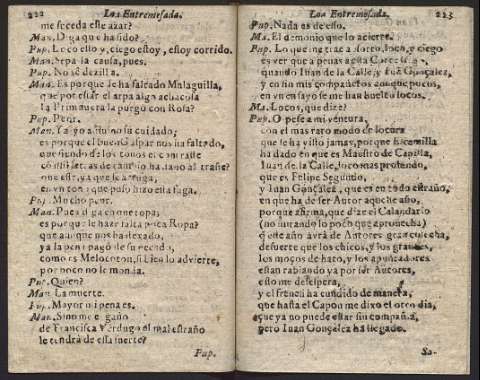 222 Loa Entremesada.
me suceda este azar?
Man. Diga que ha sido?
Pup. Loco estoy, ciego estoy, estoy corrido.
Man. Sepa la causa, pues.
Pup. No sè dezilla.
Man. Es porque le ha faltado Malaguilla,
que por estar el arpa algo
la Primavera la purgò con Rosa?
Pup. Peor.
Man. Ya yo no su cuidado;
es porque el bueno Gaspar nos ha faltado,
que siendo de los tonos el contraste
al traste?
que este, ya que le
en vn tono que puso hizo esta fuga.
Pup. Mucho peor.
Man. Pues diga en que topa;
es porque le haze falta Ropa?
que aunque nos ha dexado,
ya la peor pagò de su pecado,
como es Melocoton, si bien lo advierte,
por poco no le monda.
Pup. Quien?
Man. La muerte.
Pup. Mayor mi pena es.
Man. Sino me engaño
de Francisca Verdugo el mal estraño
le tendrà de esta suerte?
Pup.
Loa Entremesada. 223
Pup. Nada es de esso.
Ma. El demonio que lo acierte.
Pup. Lo que me trae loco, y ciego
es ver que a penas
quando Iuan de la Calle, y Iuan Gonçalez,
y con mis compañeros aunque pocos,
en vn ensayo se han buelto locos.
Ma. Locos, que dize?
Pup. O pese a mi ventura,
con el mas raro modo de locura
que se ha visto jamas, porque Escamilla
ha dado en que es Maestro de Capilla,
Iuan de la Calle, loco mas profundo,
que es Felipe Segundo,
y Iuan Gonçalez, que es en todo estraño,
en que ha de ser Autor aqueste año,
porque afirma, que dize el Calandario
(no mirando lo poco que aprouecha)
q̃ este año avrà de Autores gran cosecha,
de suerte que los chicos, y los grandes,
los moços de hato, y los apuntadores
estan rabiando ya por ser Autores,
esto me desespera,
y el frenesi ha cundido de manera,
que hasta el Capon me dixo el otro dia,
que ya no puede estar sin compañia,
pero Iuan Gonçalez ha llegado.
Sa-